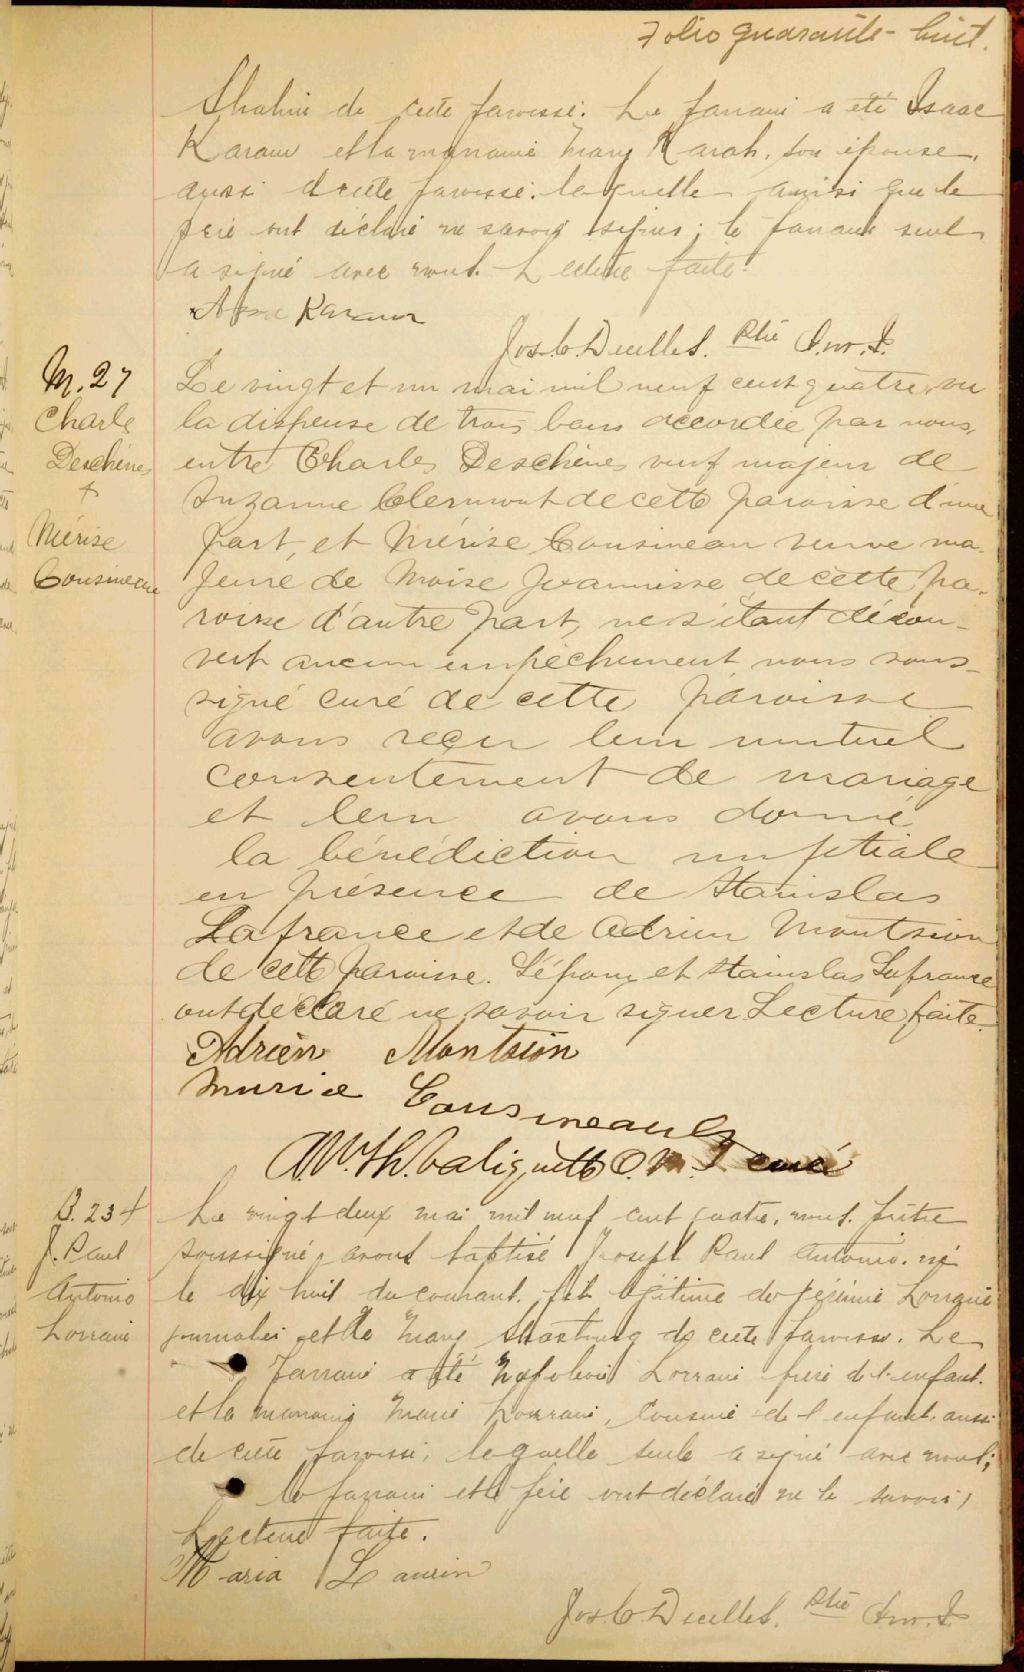 Folio quarante-huit.
de cette paroisse. Le parrain a été Isaac
Karam et la marraine Mary Karah, son épouse,
aussi de cette paroisse. laquelle ainsi que le
père ont déclaré ne savoir signer; le parrain seul
a signé avec nous. Lecture faite.
Karam
Jos. C. Duellet. Ptre O.M.I.
M. 27
Charle
Deschênes
+
Mérise
Cousineau
Le vingt et un mai mil neuf cent quatre, vu
la dispense de trois bans accordée par nous,
entre Charles Deschênes veuf majeur de
Suzanne Clermont de cette paroisse d'une
part, et Mérise Cousineau veuve ma-
jeure de Moise Joannisse de cette pa-
roisse d'autre part, ne s'étant décou-
vert aucun empêchement nous sous-
signé curé de cette paroisse
avons reçu leur mutuel
consentement de mariage
et leur avons donné
la bénédiction nuptiale
en présence de Stanislas
Lafrance et de Adrien Montsion
de cette paroisse. L'époux et Stanislas Lafrance
ont déclaré ne savoir signer Lecture faite.
Adrien Montsion
Murise Cousineault
Valiquette O.M.I curé
B. 234
J. Paul
Antonio
Lorrain
Le vingt deux mai mil neuf cent quatre, nous prêtre
soussigné, avons baptisé Joseph Paul Antonio. né
le dix huit du courant. fils légitime de Jérémie Lorrain
journalier et de Mary de cette paroisse. Le
Parrain a été Napoléon Lorrain frère de l'enfant.
et la marraine Marie Lorrain, cousine de l'enfant, aussi
de cette paroisse, laquelle seule a signé avec nous;
le parrain et le père ont déclaré ne le savoir,
Lecture faite.
Maria Laurin
Jos. C. Duellet. Ptre O.M.I.